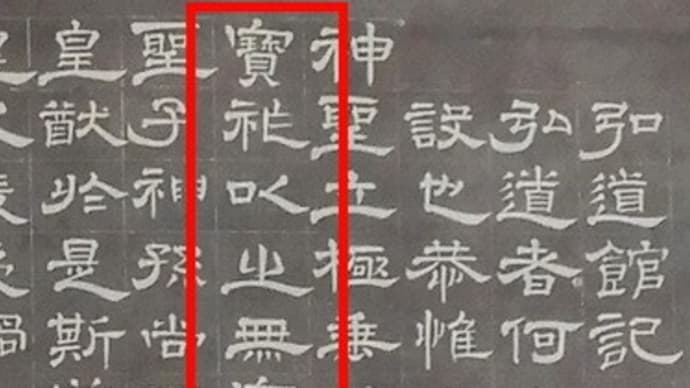 弘道館記
弘道者何
設也恭惟
神聖立極垂
寶祚以之無
聖子神孫尚
皇猷於是斯